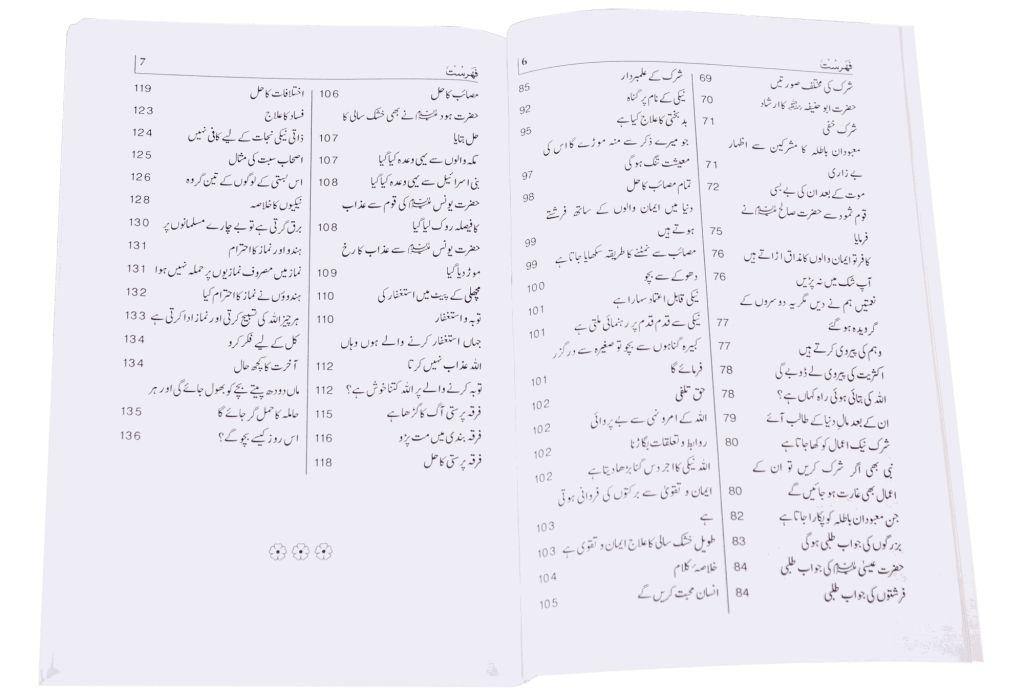 6
فہرست
شرک کی مختلف صورتیں 69
حضرت ابو حنیفہ رحمہ اللہ کا ارشاد 70
شرک خفی 71
معبودان باطلہ کا مشرکین سے اظہار
بے زاری 71
موت کے بعد ان کی بے بسی 72
قوم ثمود سے حضرت صالح علیہ السلام نے
فرمایا 75
کافر تو ایمان والوں کا مذاق اڑاتے ہیں 76
آپ شک میں نہ پڑیں 76
نعمتیں ہم نے دیں مگر یہ دوسروں کے
گرویدہ ہو گئے 77
وہم کی پیروی کرتے ہیں 77
اکثریت کی پیروی لے ڈوبے گی 78
اللہ کی بتائی ہوئی راہ کہاں ہے؟ 78
ان کے بعد مال دنیا کے طالب آئے 79
شرک نیک اعمال کو کھا جاتا ہے 80
نبی بھی اگر شرک کریں تو ان کے
اعمال بھی غارت ہو جائیں گے 80
جن معبودان باطلہ کو پکارا جاتا ہے 82
بزرگوں کی جواب طلبی ہوگی 83
حضرت عیسیٰ علیہ السلام کی جواب طلبی 84
فرشتوں کی جواب طلبی 84
شرک کے علمبردار 85
نیکی کے نام پر گناہ 92
بدبختی کا علاج کیا ہے 95
جو میرے ذکر سے منہ موڑے گا اس کی
معیشت تنگ ہوگی 97
تمام مصائب کا حل 98
دنیا میں ایمان والوں کے ساتھ فرشتے
ہوتے ہیں 99
مصائب سے نمٹنے کا طریقہ سکھایا جاتا ہے 99
دھوکے سے بچو 100
نیکی قابل اعتماد سہارا ہے 101
نیکی سے قدم قدم پر رہنمائی ملتی ہے 101
کبیرہ گناہوں سے بچو تو صغیرہ سے درگزر
فرمائے گا 101
حق تلفی 102
اللہ کے امر و نہی سے بے پروائی 102
روابط و تعلقات بگاڑنا 102
اللہ نیکی کا اجر دس گنا بڑھا دیتا ہے 102
ایمان و تقویٰ سے برکتوں کی فروانی ہوتی
ہے 103
طویل خشک سالی کا علاج ایمان و تقویٰ ہے 103
خلاصہ کلام 104
انسان محبت کریں گے 105
7
فہرست
مصائب کا حل 106
حضرت ہود علیہ السلام نے بھی خشک سالی کا
حل بتایا 107
مکہ والوں سے یہی وعدہ کیا گیا 107
بنی اسرائیل سے یہی وعدہ کیا گیا 108
حضرت یونس علیہ السلام کی قوم سے عذاب
کا فیصلہ روک لیا گیا 108
حضرت یونس علیہ السلام سے عذاب کا رخ
موڑ دیا گیا 109
مچھلی کے پیٹ میں استغفار کی 110
توبہ و استغفار 110
جہاں استغفار کرنے والے ہوں وہاں
اللہ عذاب نہیں کرتا 112
توبہ کرنے والے پر اللہ کتنا خوش ہے؟ 112
فرقہ پرستی آگ کا گڑھا ہے 115
فرقہ بندی میں مت پڑو 116
فرقہ پرستی کا حل 118
اختلافات کا حل 119
فساد کا علاج 123
ذاتی نیکی نجات کے لیے کافی نہیں 124
اصحاب سبت کی مثال 125
اس بستی کے لوگوں کے تین گروہ 126
نیکیوں کا خلاصہ 128
برق گرتی ہے تو بے چارے مسلمانوں پر 130
ہندو اور نماز کا احترام 131
نماز میں مصروف نمازیوں پر حملہ نہیں ہوا 131
ہندوؤں نے نماز کا احترام کیا 132
ہر چیز اللہ کی تسبیح کرتی اور نماز ادا کرتی ہے 133
کل کے لیے فکر کرو 134
آخرت کا کچھ حال 134
ماں دودھ پیتے بچے کو بھول جائے گی اور ہر
حاملہ کا حمل گر جائے گا 135
اس روز کیسے بچو گے؟ 136